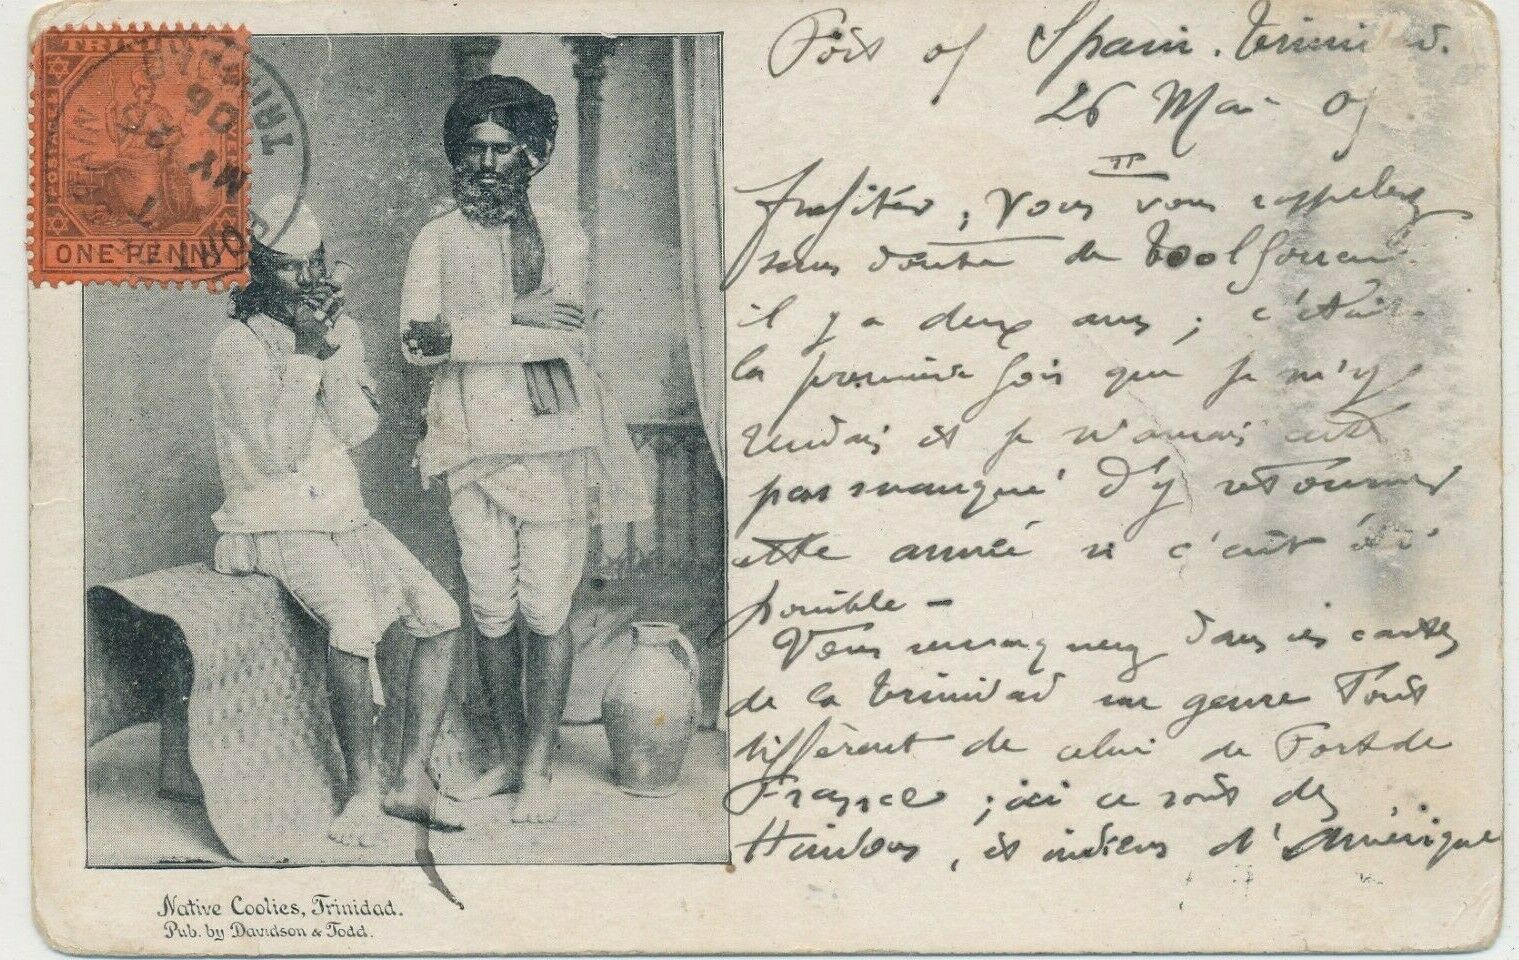 TRINIDAD
POSTAGE
ONE PENNY
PORT OF SPAIN
MY
06
TRINIDAD
Port of Spain. Trinidad.
26 Mai 0
II
profiter, Vous vous rappelez
sans doute de
il y a deux ans ; c'était
la première fois que je m'y
rendais et je n'aurais
pas manqué d'y retourner
cette année si c'eût été
possible -
Vous remarquerez dans ces cartes
de la Trinidad un genre tout
différent de celui de Fort de
France ; ici ce sont des
Hindous, et indiens d'Amérique
Native Coolies, Trinidad.
Pub. by Davidson & Todd.